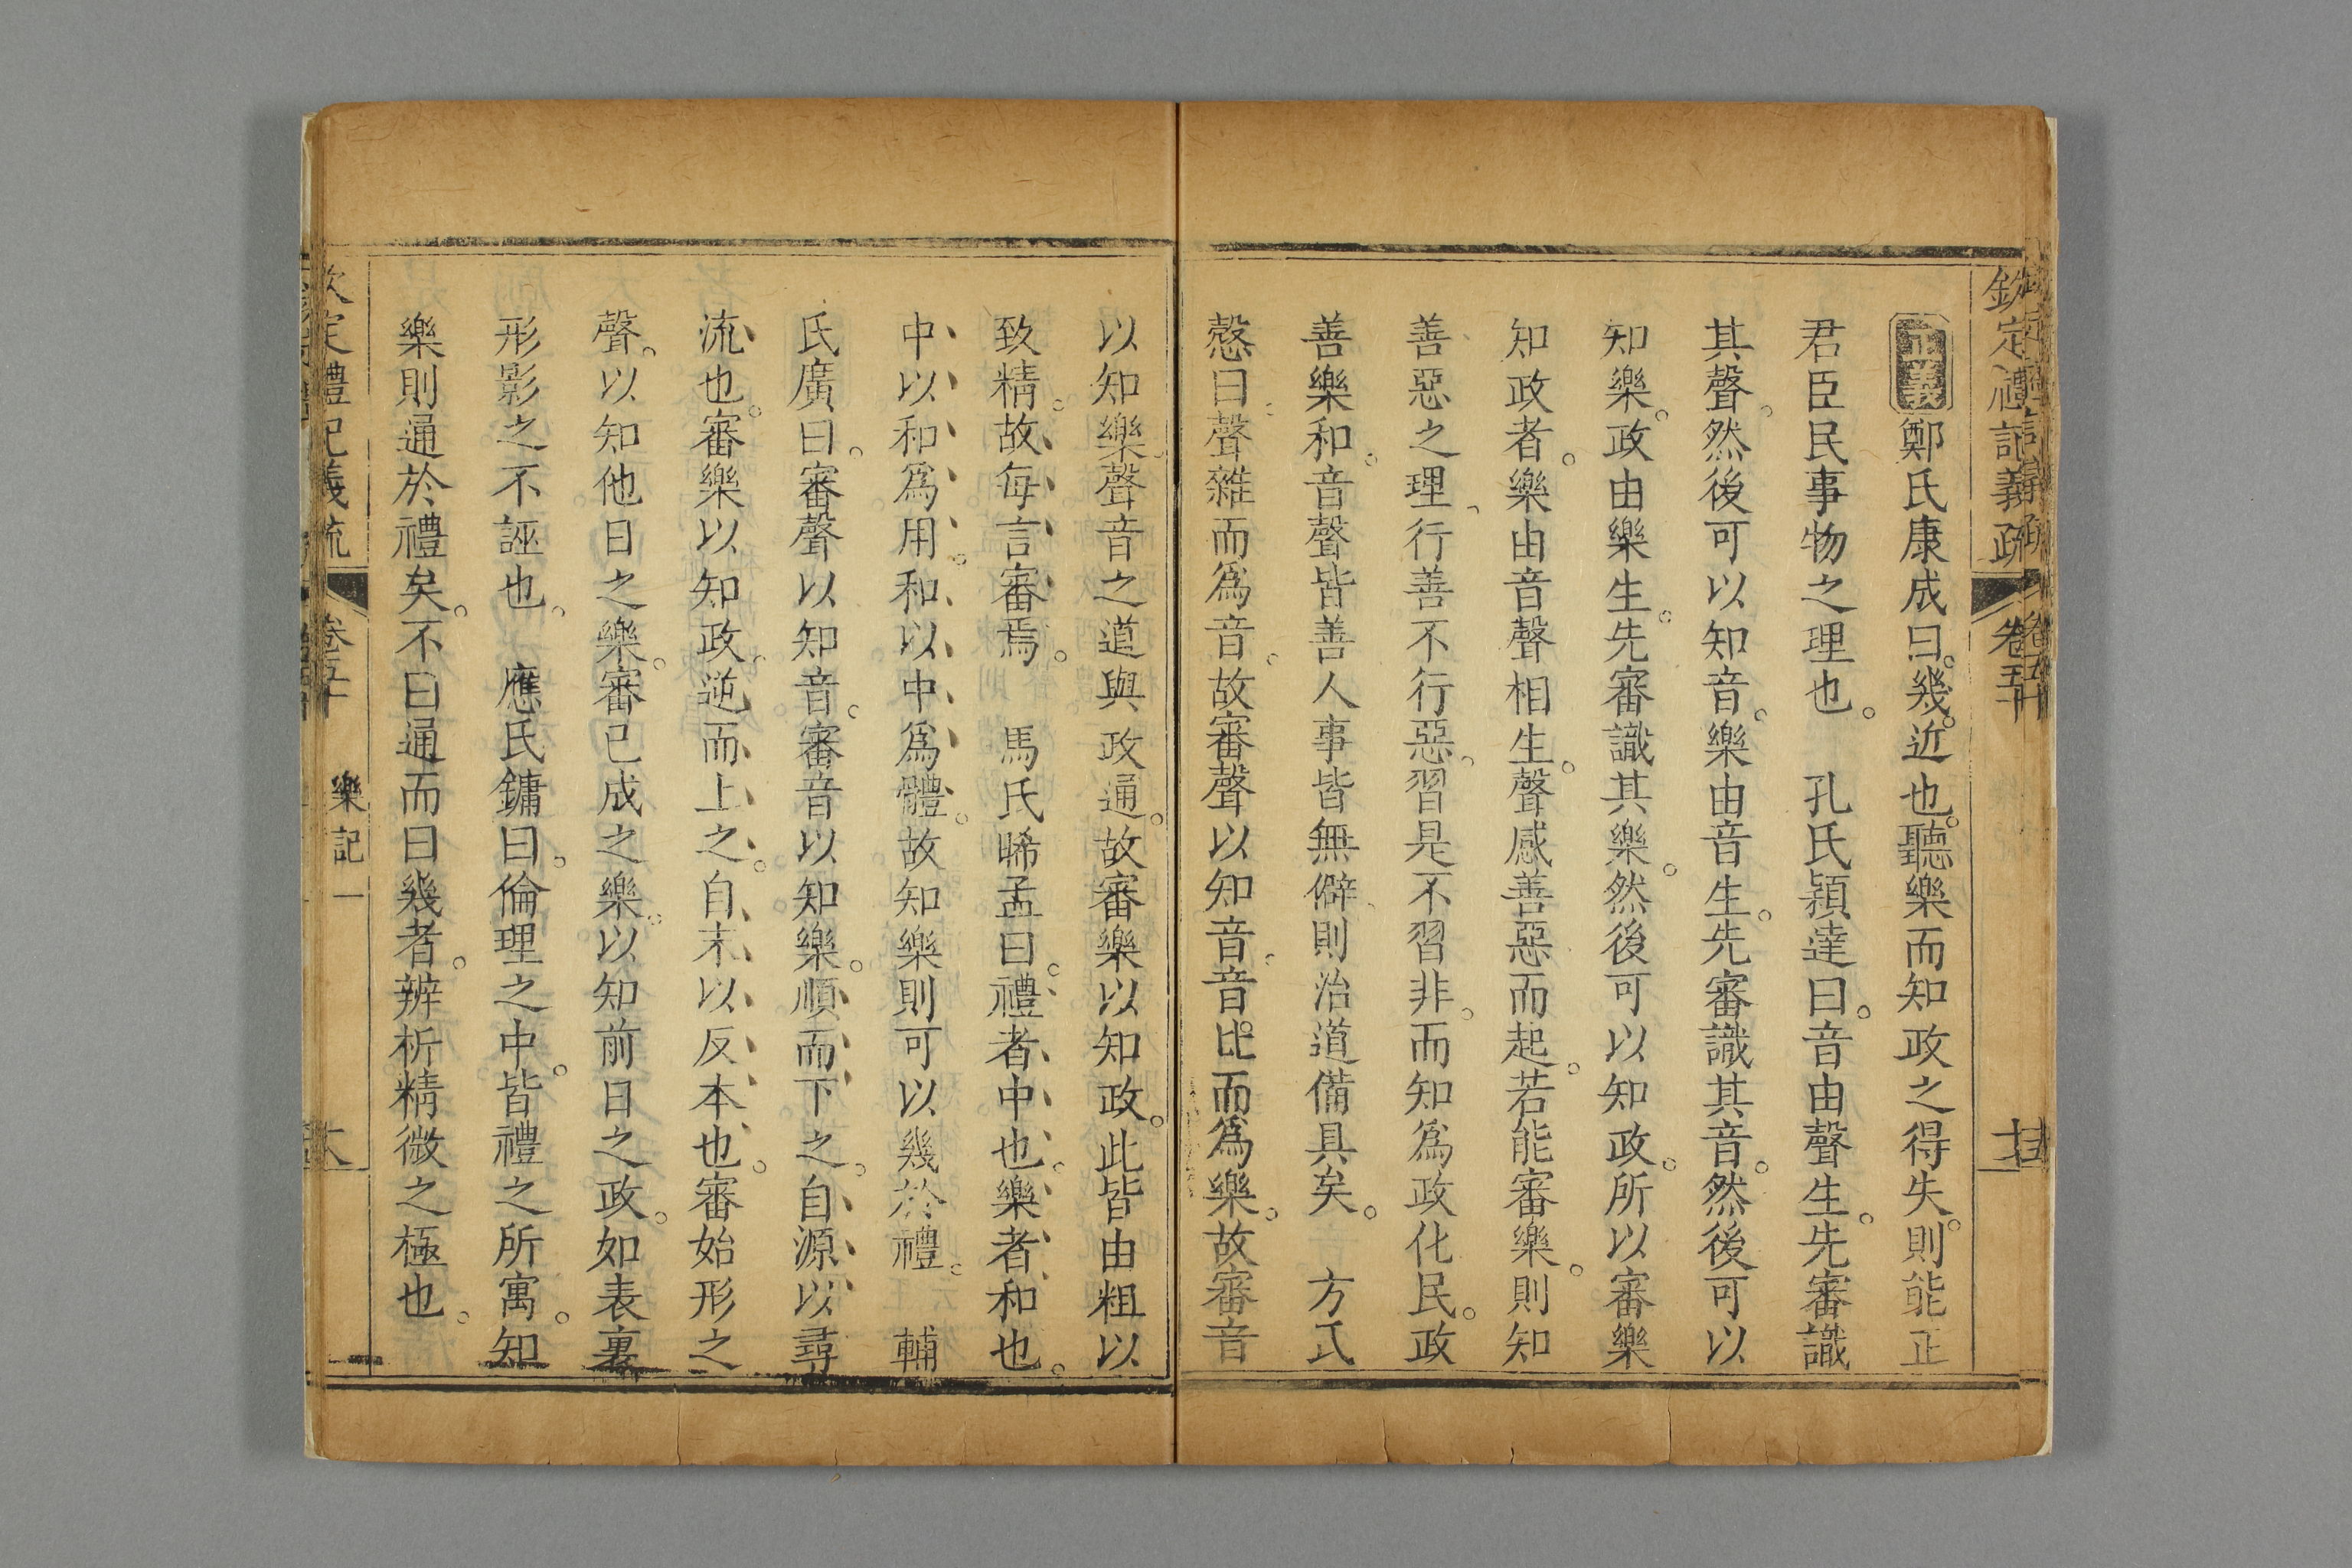 欽定禮記義疏 卷五十
正義鄭氏康成曰。幾。近也。聽樂而知政之得失。則能正
君臣民事物之理也。 孔氏穎達曰。音由聲生。先審識
其聲。然後可以知音。樂由音生。先審識其音。然後可以
知樂。政由樂生。先審識其樂。然後可以知政。所以審樂
知政者。樂由音聲相生。聲感善惡而起。若能審樂。則知
善惡之理。行善不行惡。習是不習非。而知為政化民。政
善樂和。音聲皆善。人事皆無僻。則治道備具矣。 方氏
慤曰。聲雜而爲音。故審聲以知音。音比而爲樂。故審音
以知樂。聲音之道與政通。故審樂以知政。此皆由粗以
致精。故每言審焉。 馬氏晞孟曰。禮者中也。樂者和也。
中以和爲用。和以中爲體。故知樂則可以幾於禮。 輔
氏廣曰。審聲以知音。審音以知樂。順而下之。自源以尋
流也。審樂以知政。逆而上之。自末以反本也。審始形之
聲。以知他日之樂。審已成之樂。以知前日之政。如表裏
形影之不誣也。 應氏鏞曰。倫理之中。皆禮之所寓。知
樂則通於禮矣。不曰通而曰幾者。辨析精微之極也。
欽定禮記義疏 卷五十 樂記一